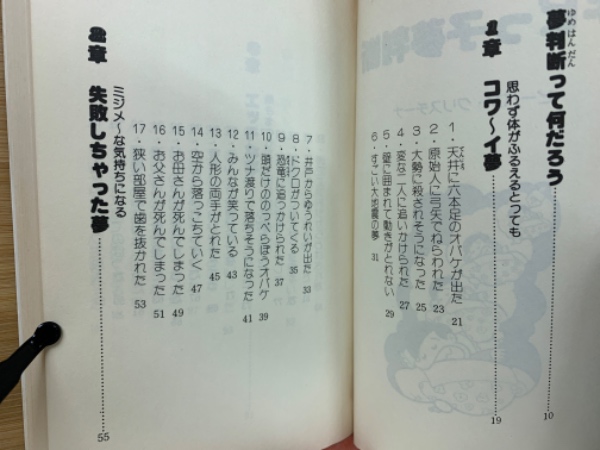 夢判断って何だろう……………10
ゆめはんだん
1章 コワ〜イ夢……………19
思わず体がふるえるとっても
1・天井に六本足のオバケが出た 21
2・原始人に弓矢でねらわれた 23
3・大勢に殺されそうになった 25
4・変な二人に追いかけられた 27
5・壁に囲まれて動きがとれない 29
6・すごい大地震の夢 31
7・井戸からゆうれいが出た 33
8・ドクロがついてくる 35
9・恐竜に追っかけられた 37
10・頭だけののっぺらぼうオバケ 39
11・ツナ渡りで落ちそうになった 41
12・みんなが笑っている 43
13・人形の両手がとれた 45
14・空から落っこちていく 47
15・お母さんが死んでしまった 49
16・お父さんが死んでしまった 51
17・狭い部屋で歯を抜かれた 53
ミジメ〜な気持ちになる
2章 失敗しちゃった夢……………55